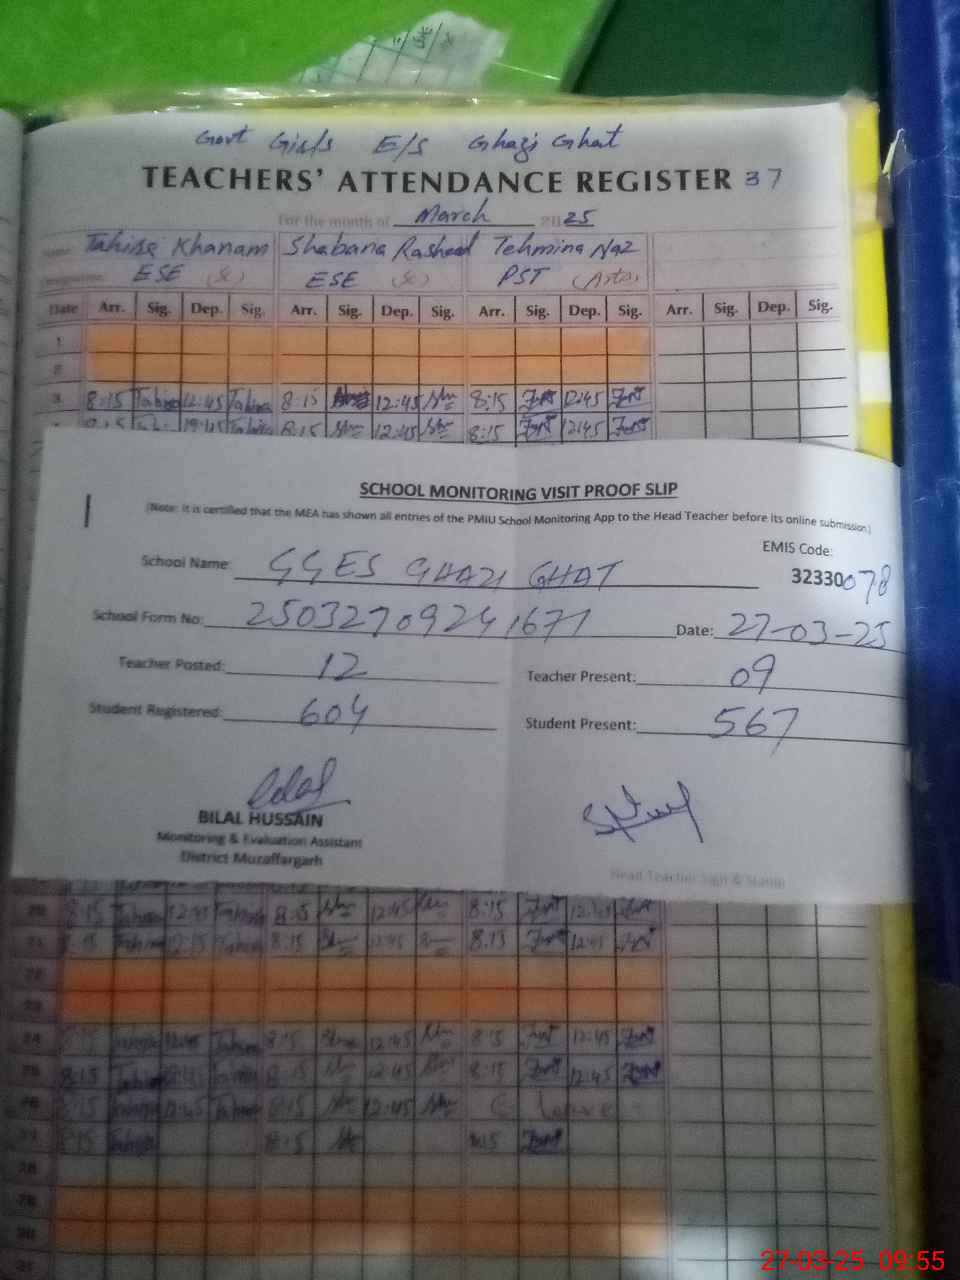 Govt Girls E/S Ghazi Ghat
TEACHERS' ATTENDANCE REGISTER 37
For the month of March 2025
Name Tahira Khanam Shabana Rasheed Tehmina Naz
ESE (Sc) ESE (Sc) PST (Arts)
Date Arr. Sig. Dep. Sig. Arr. Sig. Dep. Sig. Arr. Sig. Dep. Sig. Arr. Sig. Dep. Sig.
1
2
3 8:15 Tahira 12:45 Tahira 8:15 12:45 8:15 12:45
8:15 12:45 Tahira 8:15 12:45 8:15 12:45
SCHOOL MONITORING VISIT PROOF SLIP
(Note: it is certified that the MEA has shown all entries of the PMIU School Monitoring App to the Head Teacher before its online submission.)
EMIS Code:
School Name: GGES GHAZI GHAT 32330078
School Form No: 25032709241671 Date: 27-03-25
Teacher Posted: 12 Teacher Present: 09
Student Registered: 604 Student Present: 567
BILAL HUSSAIN
Monitoring & Evaluation Assistant
District Muzaffargarh
Head Teacher Sign & Stamp
20 8:15 Tahira 12:45 Tahira 8:15 12:45 8:15 12:45
21 8:15 Tahira 12:45 Tahira 8:15 12:45 8:15 12:45
22
23
24 8:15 12:45 Tahira 8:15 12:45 8:15 12:45
25 8:15 Tahira 12:45 Tahira 8:15 12:45 8:15 12:45
26 8:15 12:45 Tahira 8:15 12:45 C Leave
27 8:15 Tahira 8:15 8:15
28
29
30
31
27-03-25 09:55